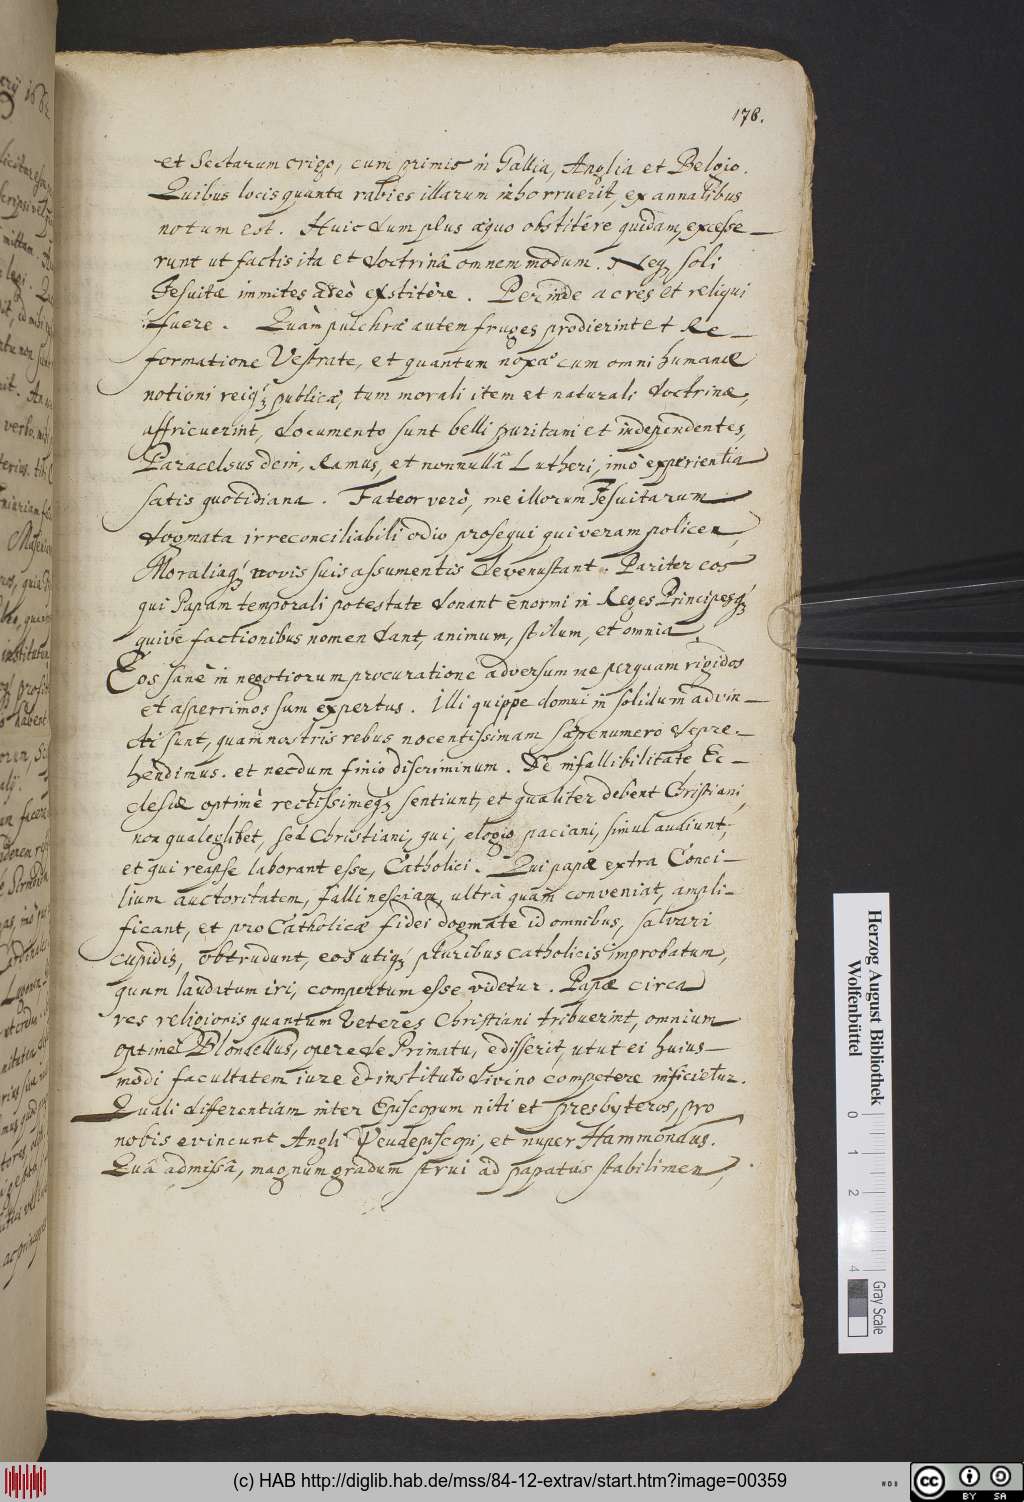 178.
et Sectarum origo, cum primis in Gallia, Anglia et Belgio.
Quibus locis quanta rabies illarum inhorruerit, ex annalibus
notum est. Huic dum plus æquo obstitére quidam, excesse-
runt ut factis ita et doctrinâ omnem modum. Neq; soli
Jesuitæ immites adeò exstitêre. Perinde acres et reliqui
fuere. Quàm pulchræ autem fruges prodierint et Re-
formatione Vestrate, et quantum noxæ cum omni humanæ
notioni reiq; publicæ, tum morali item et naturali doctrinæ,
affricuerint, documento sunt belli puritani et independentes,
Paracelsus dein, Ramus, et nonnulla Lutheri, imò experientia
satis quotidiana. Fateor verò, me illorum Jesuitarum
dogmata irreconciliabili odio prosequi qui veram policen,
Moraliaq; novis suis assumentis devenustant. Pariter eos
qui Papam temporali potestate donant enormi in Reges Principesq;
quive factionibus nomen dant, animum, stilum, et omnia.
Eos sanè in negotiorum procuratione adversum me perquam rigidos
et asperrimos sum expertus. Illi quippe domui in solidum advin-
cti sunt, quam nostris rebus nocentissimam sæpenumero depre-
hendimus. et necdum finio discriminum. De infallibilitate Ec-
clesiæ optimè rectissimeq; sentiunt, et qualiter debent Christiani,
non qualeslibet, sed Christiani, qui, elogio paciani, simul audiunt,
et qui reapse laborant esse, Catholici. Qui papæ extra Conci-
lium auctoritatem, falli nesciam, ultrà quam conveniat, ampli-
ficant, et pro Catholicæ fidei dogmate id omnibus, salvari
cupidis, obtrudunt, eos utiq; pluribus catholicis improbatum,
quam laudatum iri, compertum esse videtur. Papæ circa
res religionis quantum Veteres Christiani tribuerint, omnium
optimè Blondellus, opere de Primatu, edisserit, utut ei huius-
modi facultatem iure et instituto divino competere inficietur.
Quali differentiam inter Episcopum niti et presbyteros, pro
nobis evincunt Angli Pseudepiscopi, et nuper Hammondus.
Quâ admissâ, magnum gradum strui ad papatûs stabilimen,
Herzog August Bibliothek
Wolfenbüttel
0 1 2 4
Gray Scale
(c) HAB http://diglib.hab.de/mss/84-12-extrav/start.htm?image=00359
cc BY SA